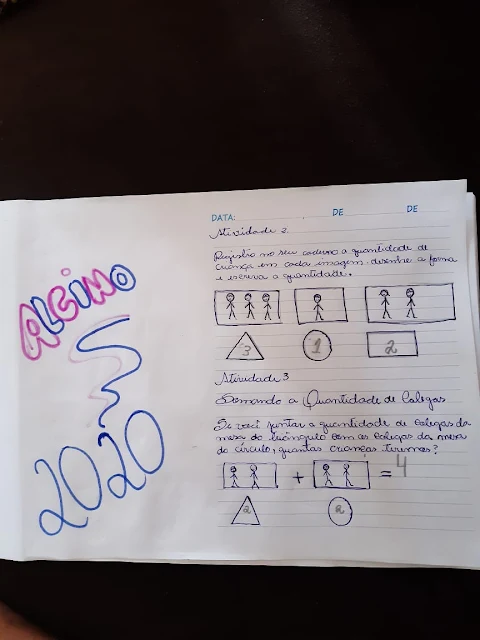 ALCINO
2020
DATA: DE DE
Atividade 2
Registro no seu caderno a quantidade de
criança em cada imagem. desenhe a forma
e escreva a quantidade.
3 1 2
Atividade 3
Somando a Quantidade de Colegas
Se você juntar a quantidade de colegas da
mesa do triângulo com os colegas da mesa
do círculo, quantas crianças teremos?
+ = 4
2 2